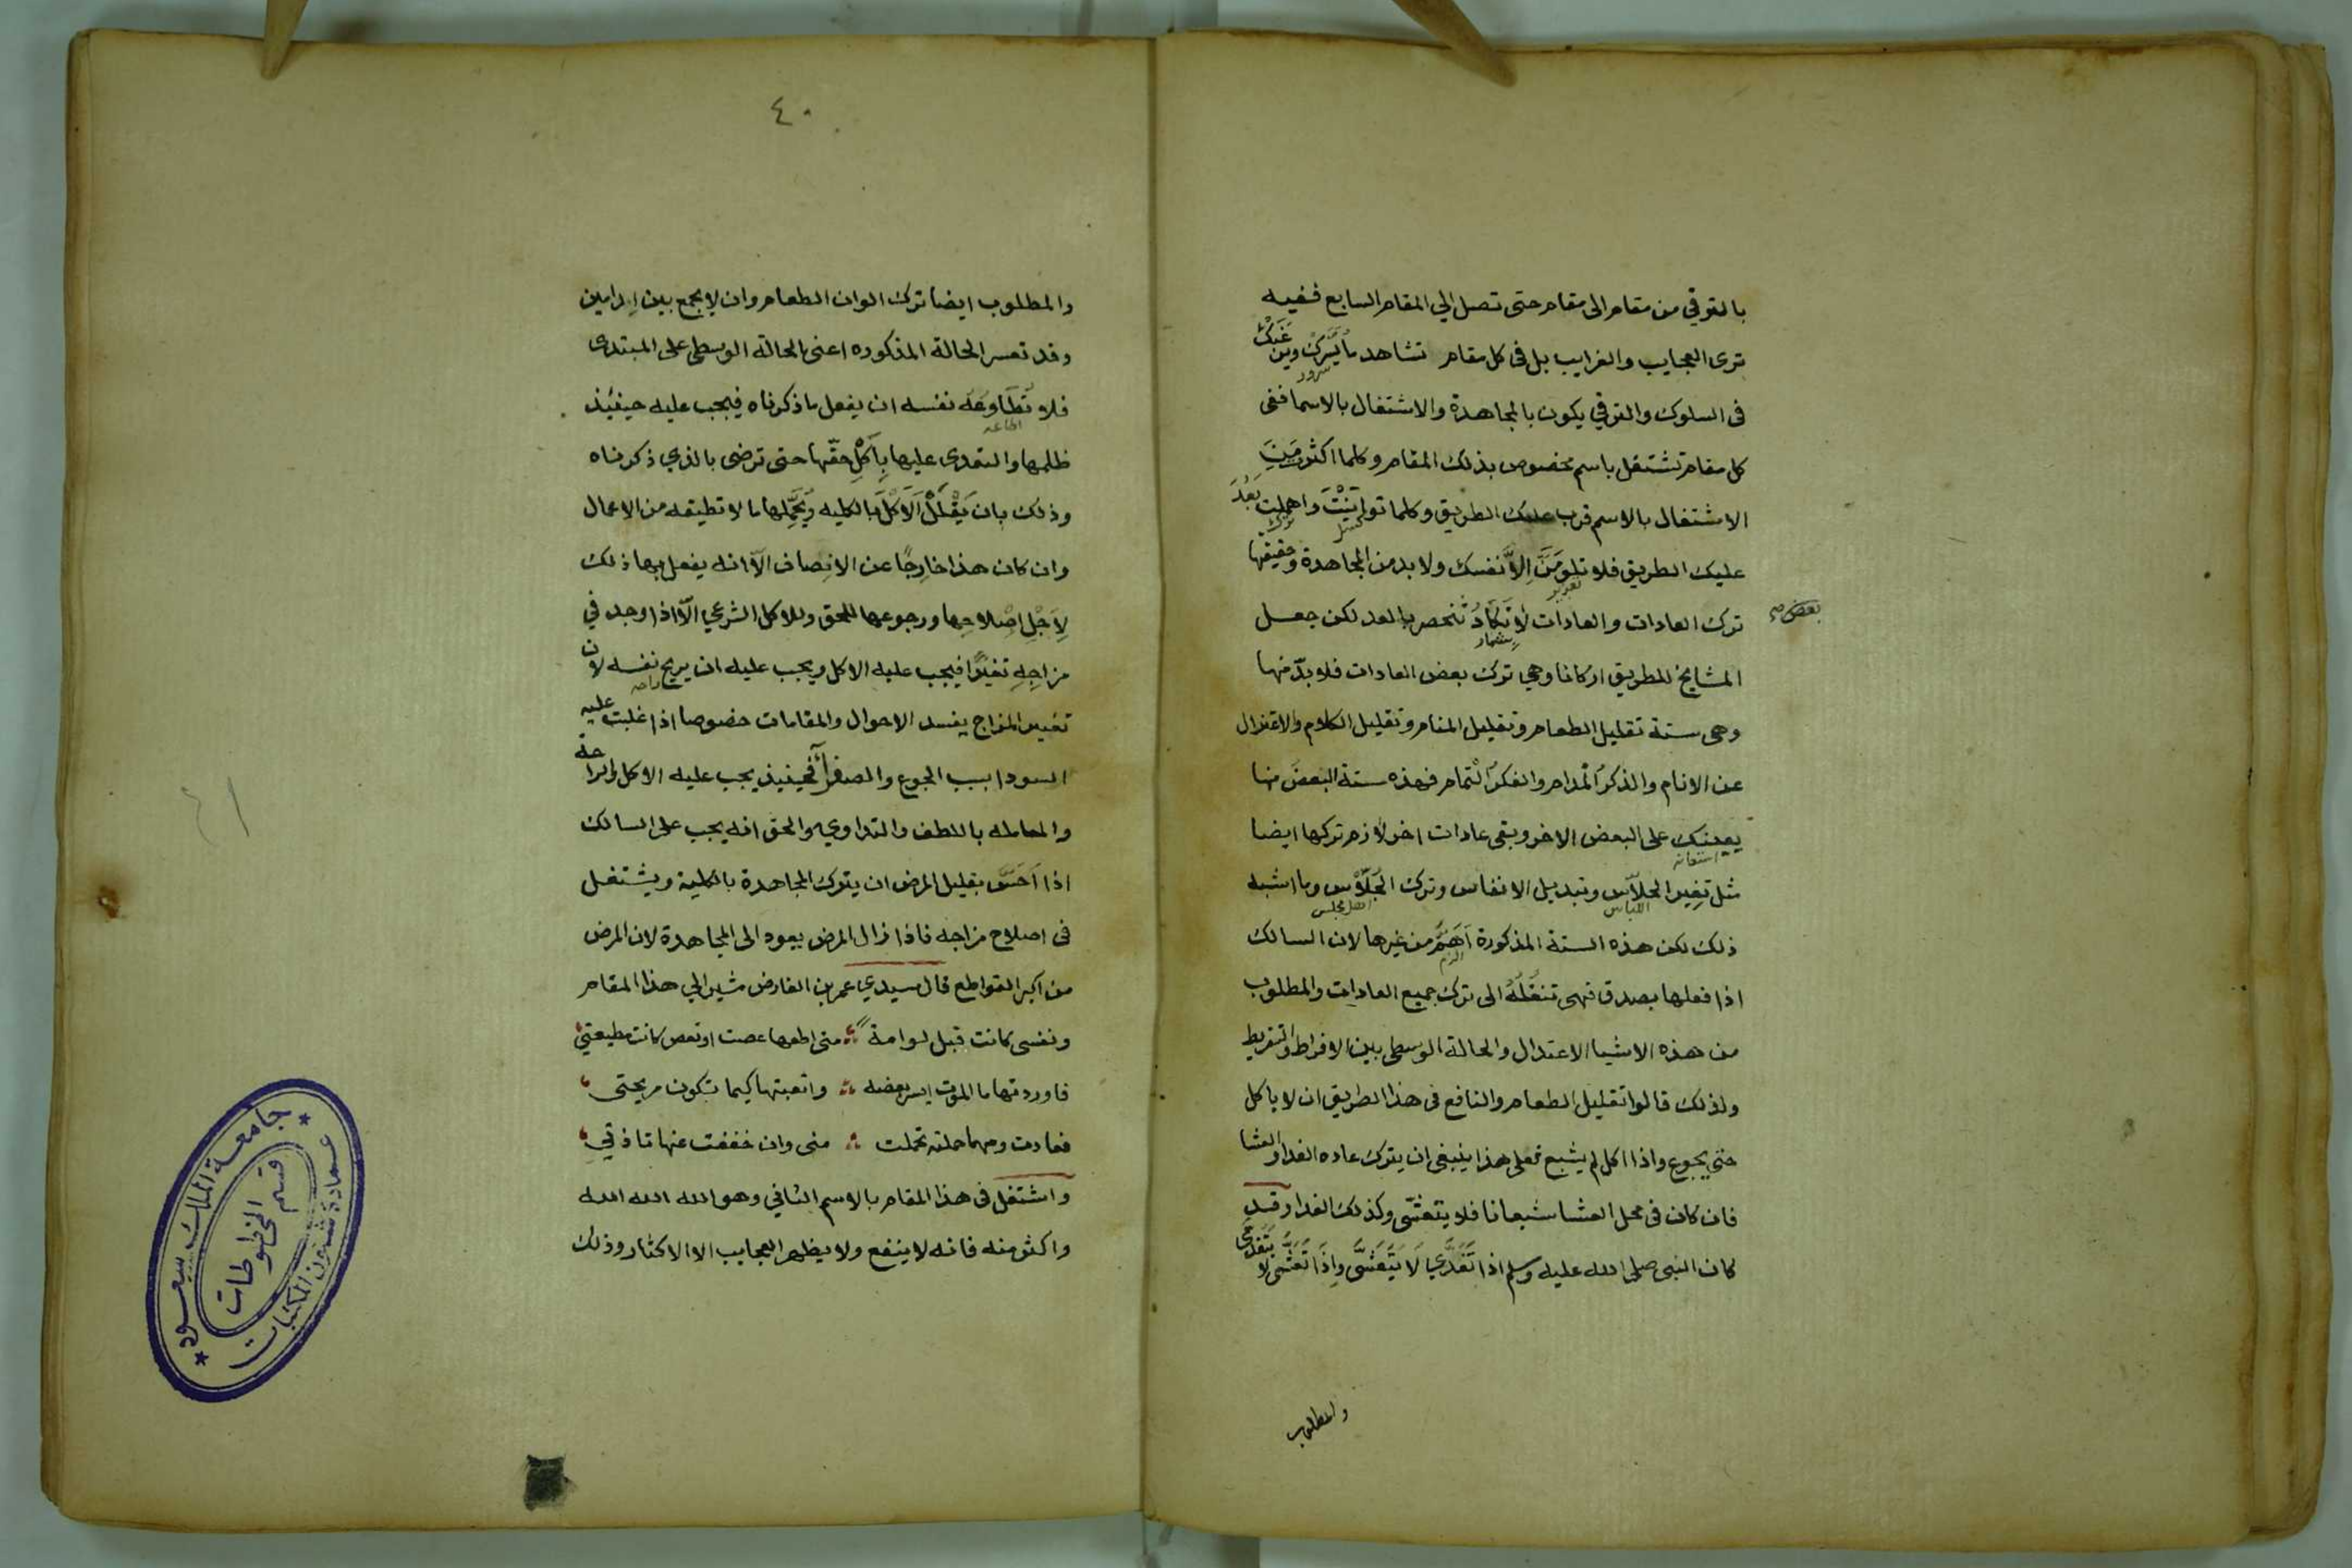 بالترقي من مقام الى مقام حتى تصل الي المقام السابع ففيه
ترى العجايب والغرايب بل في كل مقام تشاهد ما يَسُرُّك وبين غَيَّك
سرور
في السلوك والترقي يكون بالمجاهدة والاشتغال بالاسما ففى
كل مقام تشتغل باسم مخصوص بذلك المقام وكلما اكثرت مِنَ
الاشتغال بالاسم قرب عليك الطريق وكلما توانَيْتَ واهملت بَعُدَ
كسل ترك
عليك الطريق فلا تلومَنَّ اِلاَّ نفسك ولا بد من المجاهدة وحقيقتها
تعزير
ترك العادات والعادات لا تَكَادُ تُنحصر بالعد لكن جعل
بعض صح
المشايخ للطريق اركانا وهي ترك بعض العادات فلا بدّ منها
وهى ستة تقليل الطعام وتقليل المنام وتقليل الكلام والاعتزال
عن الانام والذكرُ الْمدام والفكرُ الْتمام فهذه ستة البعضُ منها
يعينك على البعض الاخر وبقى عادات اخر لازم تركها ايضا
استعانه
مثل تغيير الجلاّس وتبديل الانفاس وترك الجَلاّس وما اشبه
اللباس اهل مجلس
ذلك لكن هذه الستة المذكورة اَهَمُّ من غيرها لان السالك
الزم
اذا فعلها بصدق فهى تنقُلُهُ الى ترك جميع العادات والمطلوب
من هذه الاشيا الاعتدال والحالة الوسطى بين الافراط والتفريط
ولذلك قالوا تقليل الطعام والنافع فى هذا الطريق ان لا ياكل
حتي يجوع واذا اكل لم يشبع فعلى هذا ينبغى ان يترك عاده الغدا والعشا
فان كان فى محل العشا شبعانا فلا يتعشّى وكذلك الغدا وقد
كان النبى صلى الله عليه وسلم اذا تَغَدَّي لَا يَتَعَشَّى وَاِذَا تَعَشَّى لا يَتَغَدَّى
والمطلوب
٤٠
والمطلوب ايضا ترك الوان الطعام وان لا يجمع بين ادامين
وقد تعسر الحالة المذكوره اعنى الحالة الوسطى على المبتدى
فلا تُطَاوِعُه نفسه ان يفعل ما ذكرناه فيجب عليه حينئذ
اطاعه
ظلمها والتعدى عليها بِاَكْلِ حقّها حتى ترضى بالذي ذكرناه
وذلك بان يَقْلَلُ الَاكْلَ بالكليه ويُحَمِّلها ما لا تطيقه من الاعمال
وان كان هذا خارِجًا عن الانصاف الاّ انه يفعل بها ذلك
لِاَجْلِ اِصْلاحِها ورجوعها للحق وللاكل الشرعي الاّ اذا وجد في
مزاجِهِ تغيّرًا فيجب عليه الاكل ويجب عليه ان يريح نفسه لان
راحه
تغيير المزاج يفسد الاحوال والمقامات خصوصا اذا غلبت عليه
السودا بسبب الجوع والصفراء فحينيذ يجب عليه الاكل والراحة
والمعامله باللطف والتداوي والحق انه يجب على السالك
اذا اَحَسَّ بقليل المرض ان يترك المجاهدة بالكلية ويشتغل
فى اصلاح مزاجه فاذا زال المرض يعود الى المجاهدة لان المرض
من اكبر القواطع قال سيدي عمر بن الفارض مشير الي هذا المقام
ونفسى كانت قبل لوامةً متى اطعها عصت او تعص كانت مطيعتى
فاوردتها ما الموت ايسر بعضه واتعبتها كيما تكون مريحتى
فعادت ومهما حملته تحملت منى وان خففت عنها تاذتِ
واشتغل فى هذا المقام بالاسم الثاني وهو الله الله الله
واكثر منه فانه لا ينفع ولا يظهر العجايب الا الاكثار وذلك
٤١
جامعة الملك سعود
عمادة شؤون المكتبات
قسم المخطوطات